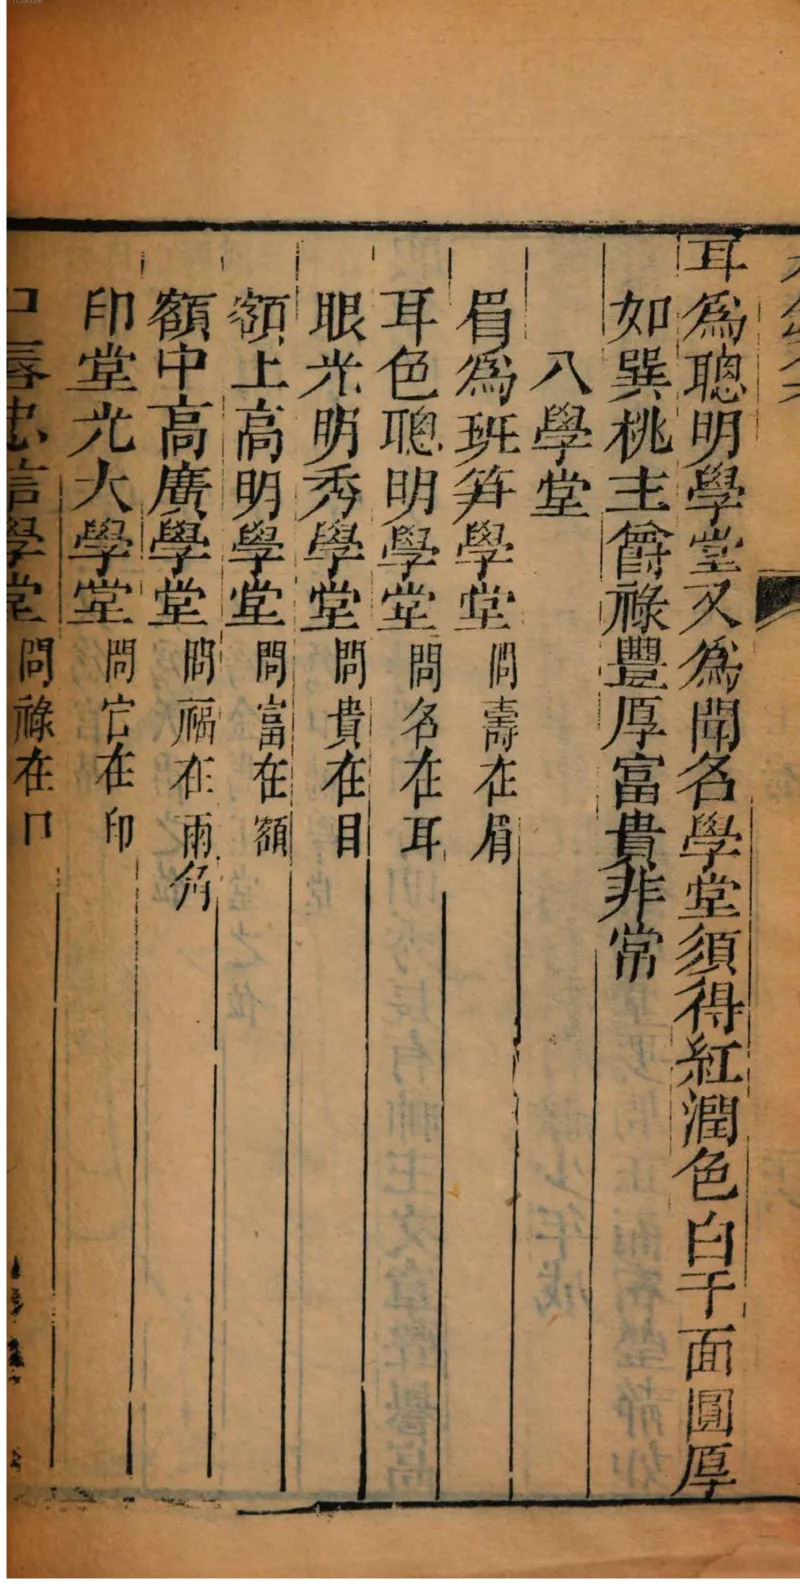 耳爲聰明學堂又爲聞名學堂須得紅潤色白于面圓厚
如巽桃主爵祿豐厚富貴非常
八學堂
眉爲班笋學堂 問壽在眉
耳色聰明學堂 問名在耳
眼光明秀學堂 問貴在目
額上高明學堂 問富在額
額中高廣學堂 問福在兩角
印堂光大學堂 問官在印
口唇忠信學堂 問祿在口